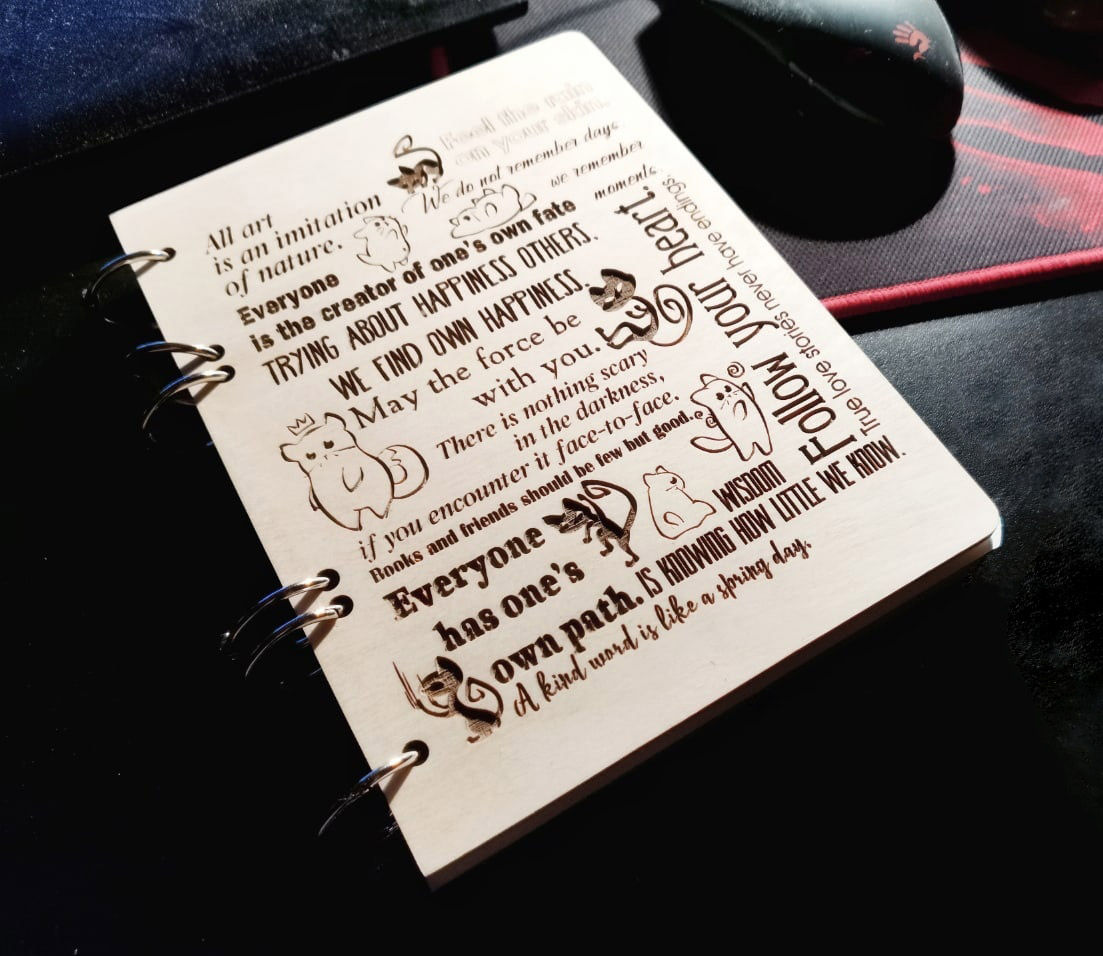 Feel the rain
on your skin.
We do not remember days
we remember
moments.
All art
is an imitation
of nature.
Everyone
is the creator of one's own fate
TRYING ABOUT HAPPINESS OTHERS.
WE FIND OWN HAPPINESS.
May the force be
with you.
There is nothing scary
in the darkness,
if you encounter it face-to-face.
Books and friends should be few but good.
Follow your heart.
True love stories never have endings.
Everyone
has one's
own path.
WISDOM
IS KNOWING HOW LITTLE WE KNOW.
A kind word is like a spring day.